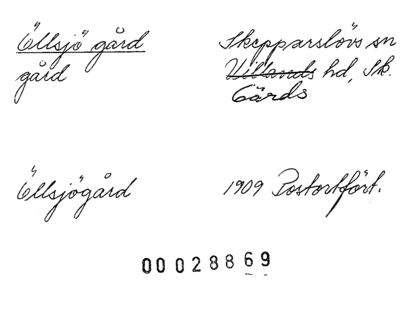 Öllsjö gård Skepparslövs sn
gård Villands hd, Sk.
Gärds
Öllsjögård 1909 Postortfört.
00028869